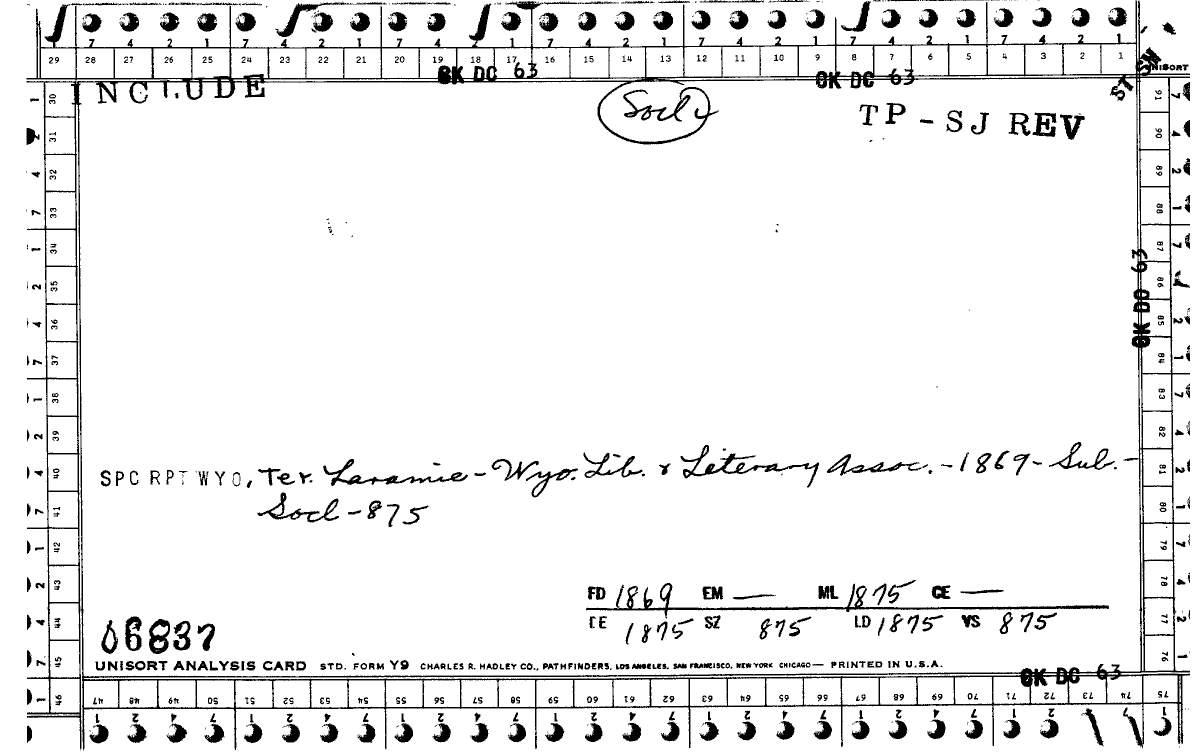 7 4 2 1 7 4 2 1 7 4 2 1 7 4 2 1 7 4 2 1 7 4 2 1 7 4 2 1
29 28 27 26 25 24 23 22 21 20 19 18 17 16 15 14 13 12 11 10 9 8 7 6 5 4 3 2 1
UNISORT
OK DC 63 OK DC 63
ST SW
INCLUDE Socl TP-SJ REV
30 31 32 33 34 35 36 37 38 39 40 41 42 43 44 45 46
91 90 89 88 87 86 85 84 83 82 81 80 79 78 77 76 75
OK DC 63
SPC RPT WYO, Ter. Laramie - Wyo. Lib. & Literary Assoc. - 1869 - Sub. -
Socl - 875
FD 1869 EM — ML 1875 CE —
EE 1875 SZ 875 LD 1875 VS 875
06837
UNISORT ANALYSIS CARD STD. FORM Y9 CHARLES R. HADLEY CO., PATHFINDERS, LOS ANGELES, SAN FRANCISCO, NEW YORK CHICAGO — PRINTED IN U.S.A.
OK DC 63
47 48 49 50 51 52 53 54 55 56 57 58 59 60 61 62 63 64 65 66 67 68 69 70 71 72 73 74